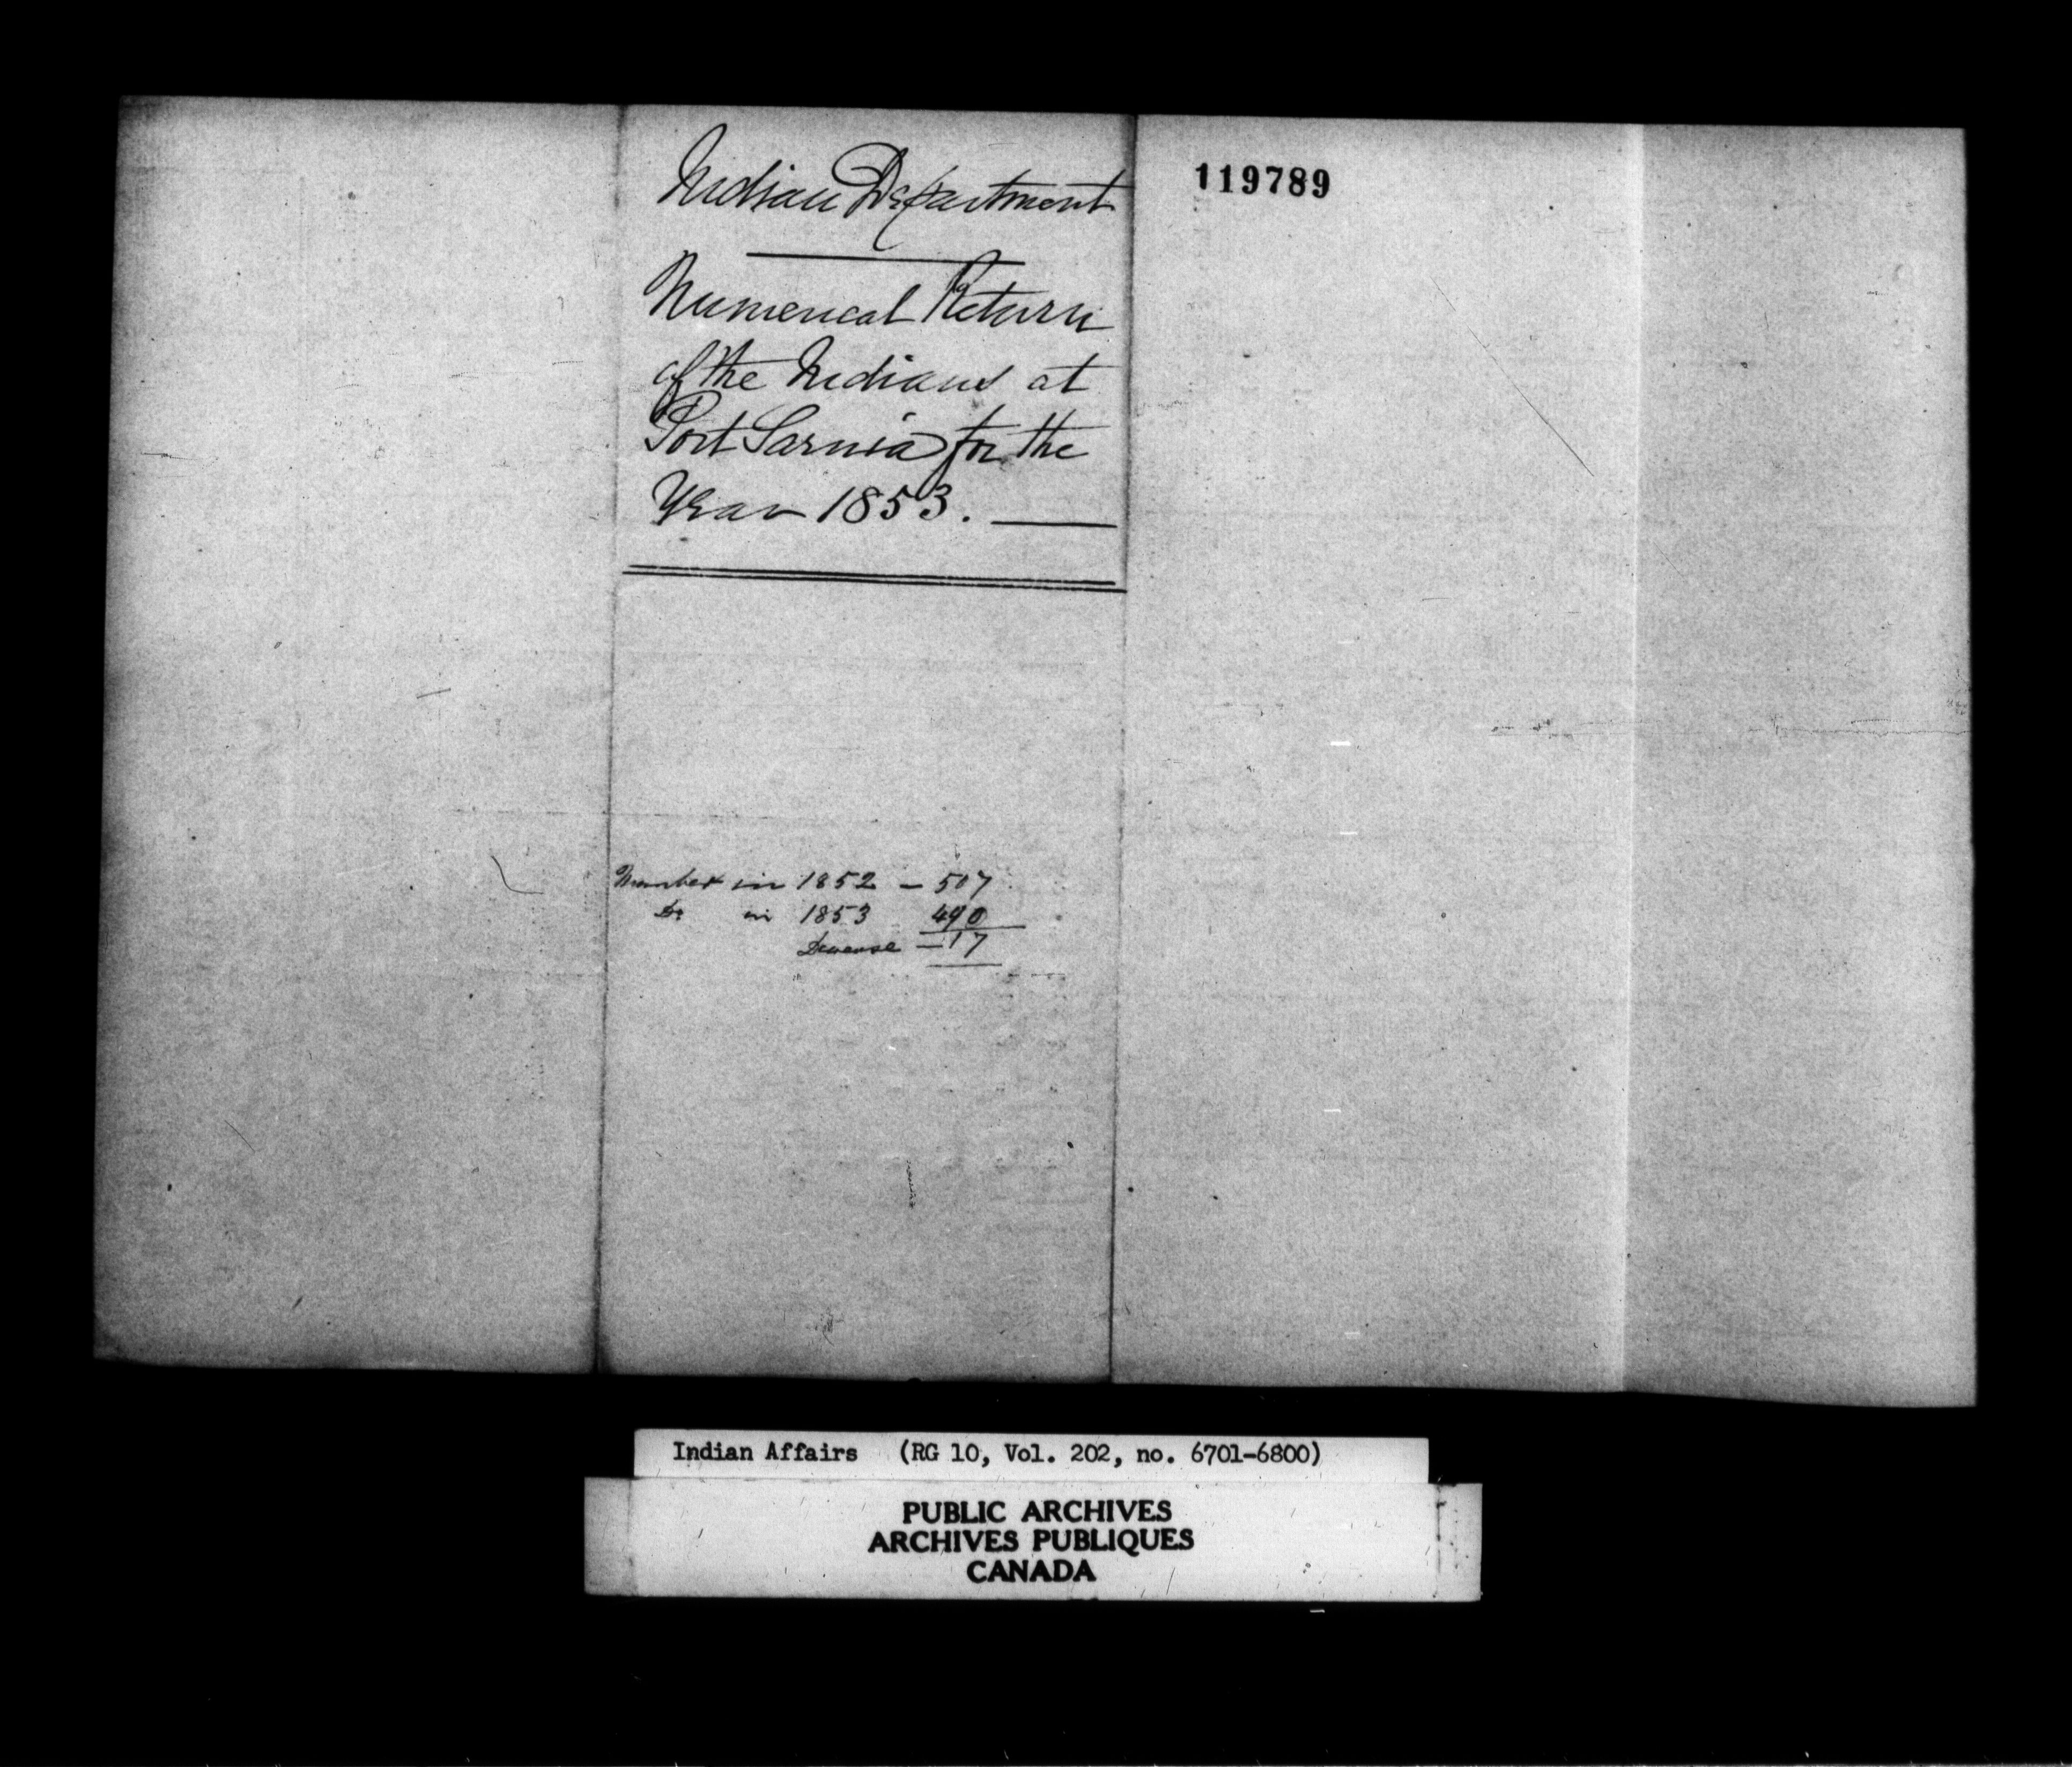 Indian Department
Numerical Return
of the Indians at
Port Sarnia for the
Year 1853.
119789
Number in 1852 — 507
Do in 1853 490
Decrease — 17
Indian Affairs (RG 10, Vol. 202, no. 6701-6800)
PUBLIC ARCHIVES
ARCHIVES PUBLIQUES
CANADA